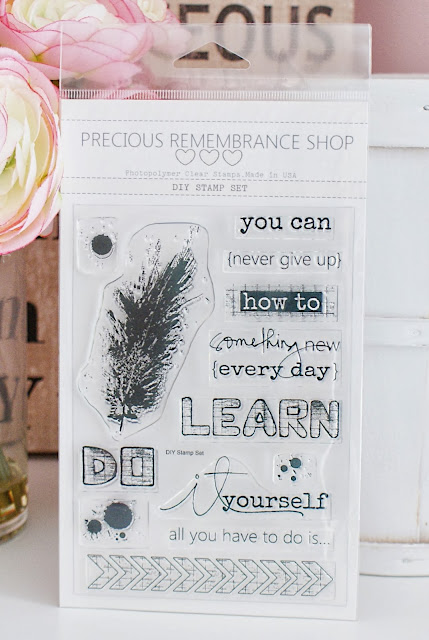 EOUS
PRECIOUS REMEMBRANCE SHOP
Photopolymer Clear Stamps.Made In USA
DIY STAMP SET
you can
{never give up}
how to
something new
{every day}
LEARN
DO
DIY Stamp Set
it yourself
all you have to do is...